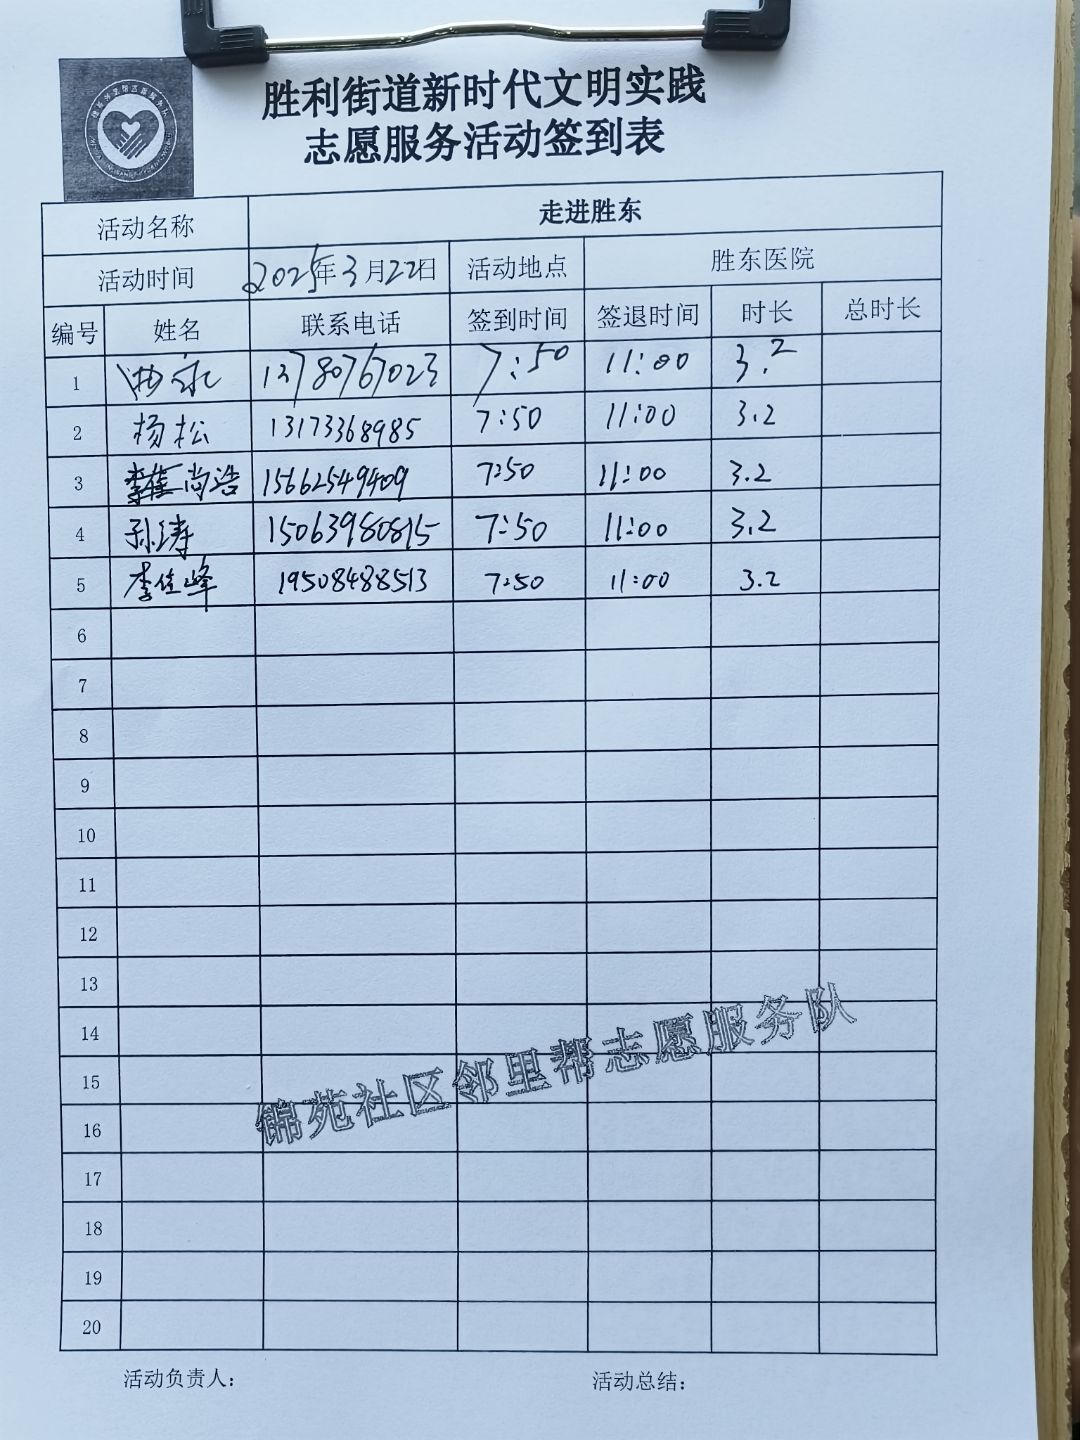 胜利街道新时代文明实践
志愿服务活动签到表
活动名称 走进胜东
活动时间 2025年3月22日 活动地点 胜东医院
编号 姓名 联系电话 签到时间 签退时间 时长 总时长
1 13780767023 7:50 11:00 3.2
2 杨松 13173368985 7:50 11:00 3.2
3 尚浩 15662549409 7:50 11:00 3.2
4 孙涛 15063980815 7:50 11:00 3.2
5 李佳峰 19508488513 7:50 11:00 3.2
6
7
8
9
10
11
12
13
14
15
16
17
18
19
20
锦苑社区邻里帮志愿服务队
活动负责人： 活动总结：